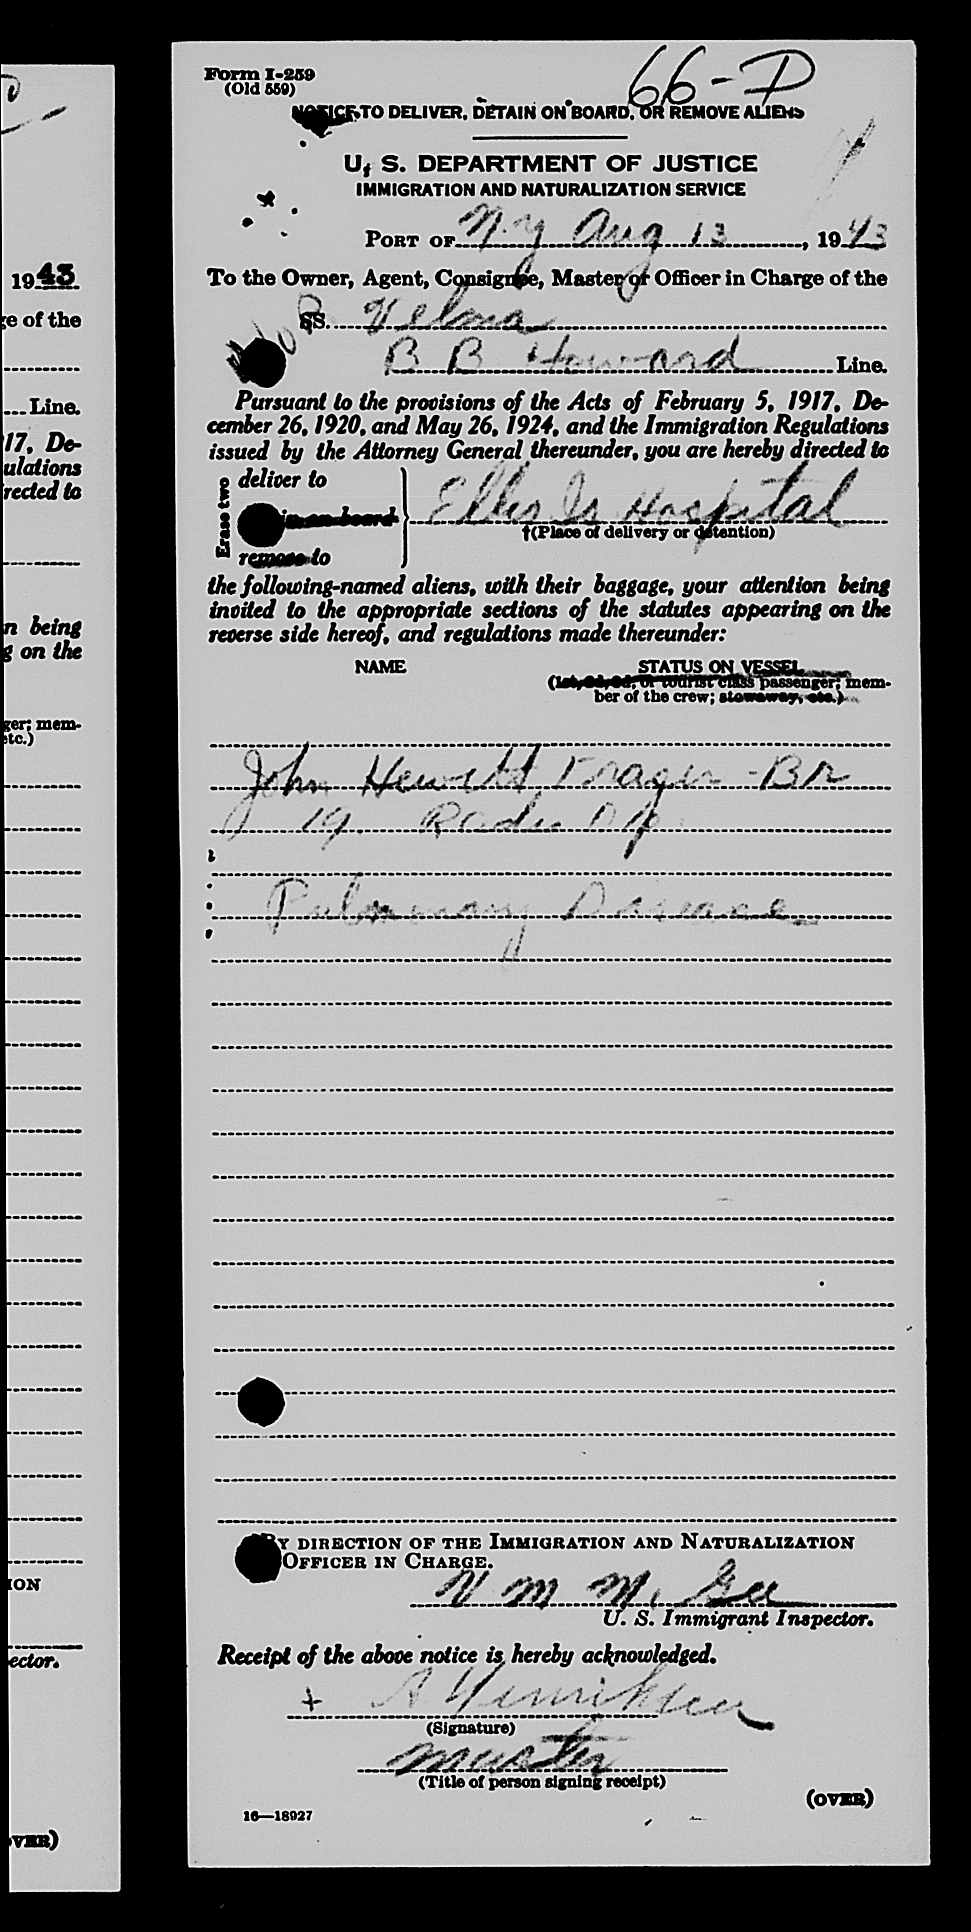 1943
ge of the
Line.
17, De-
ulations
rected to
n being
g on the
ger; mem-
etc.)
ION
ector.
OVER)
Form I-259
(Old 559)
66-D
NOTICE TO DELIVER, DETAIN ON BOARD, OR REMOVE ALIENS
U. S. DEPARTMENT OF JUSTICE
IMMIGRATION AND NATURALIZATION SERVICE
PORT OF N.Y Aug 13, 1943
To the Owner, Agent, Consignee, Master or Officer in Charge of the
SS. Velma
B B Howard Line.
Pursuant to the provisions of the Acts of February 5, 1917, De-
cember 26, 1920, and May 26, 1924, and the Immigration Regulations
issued by the Attorney General thereunder, you are hereby directed to
Erase two
deliver to
in on board
remove to
Ellis Is Hospital
†(Place of delivery or detention)
the following-named aliens, with their baggage, your attention being
invited to the appropriate sections of the statutes appearing on the
reverse side hereof, and regulations made thereunder:
NAME STATUS ON VESSEL
(1st, 2d, 3d, or tourist class passenger; mem-
ber of the crew; stowaway, etc.)
John Hewitt - Br
19 Radio Op
Pulmonary Disease
BY DIRECTION OF THE IMMIGRATION AND NATURALIZATION
OFFICER IN CHARGE.
V M McGee
U. S. Immigrant Inspector.
Receipt of the above notice is hereby acknowledged.
+ A Henriksen
(Signature)
master
(Title of person signing receipt)
(OVER)
16—18927